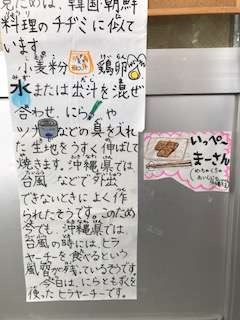 見ためは、韓国朝鮮
料理のチヂミに似て
います。
小麦粉、鶏卵、
水または出汁を混ぜ
合わせ、にら!や
ツナなどの具を入れ
た生地をうすく伸ばして
焼きます。沖縄県では
台風などで外出
できないときによく作
られたそうです。このため
今でも、沖縄県では
台風の時には、ヒラ
ヤーチーを食べるという
風習が残っているそうです。
今日は、にらともずくを
使ったヒラヤーチーです。
いっぺー
まーさん